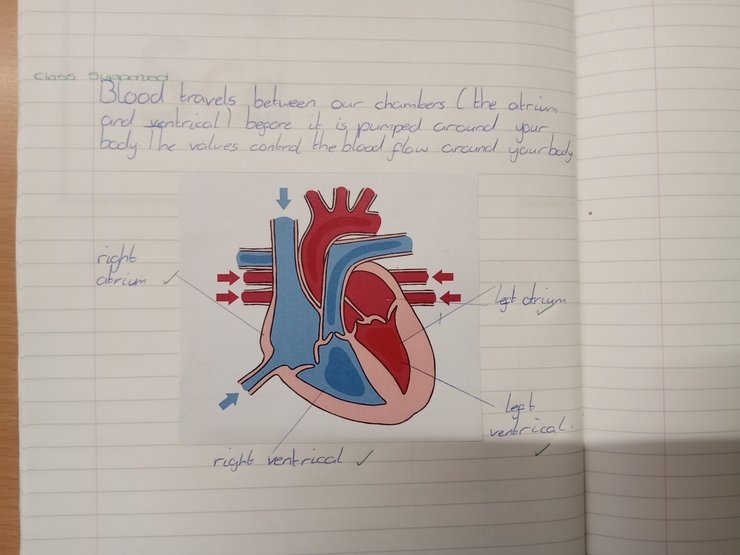 Class Supported
Blood travels between our chambers (the atrium
and ventrical) before it is pumped around your
body. The valves control the blood flow around your body
right
atrium ✓
left atrium
✓
left
ventrical.
✓
right ventrical ✓